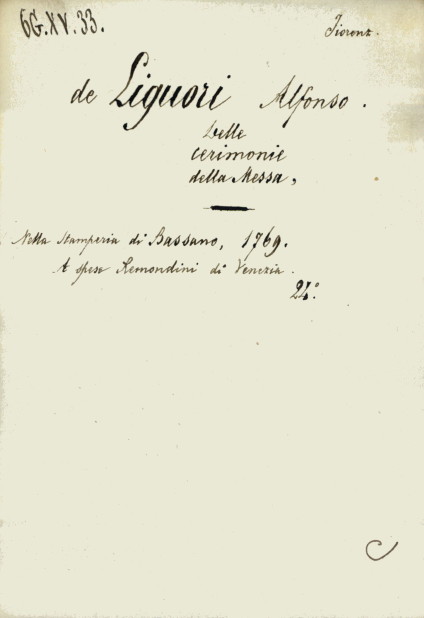 6G.XV.33.
Fiorenz.
de Liguori Alfonso.
Delle
cerimonie
della Messa,
Nella Stamperia di Bassano, 1769.
A spese Remondini di Venezia.
24.°